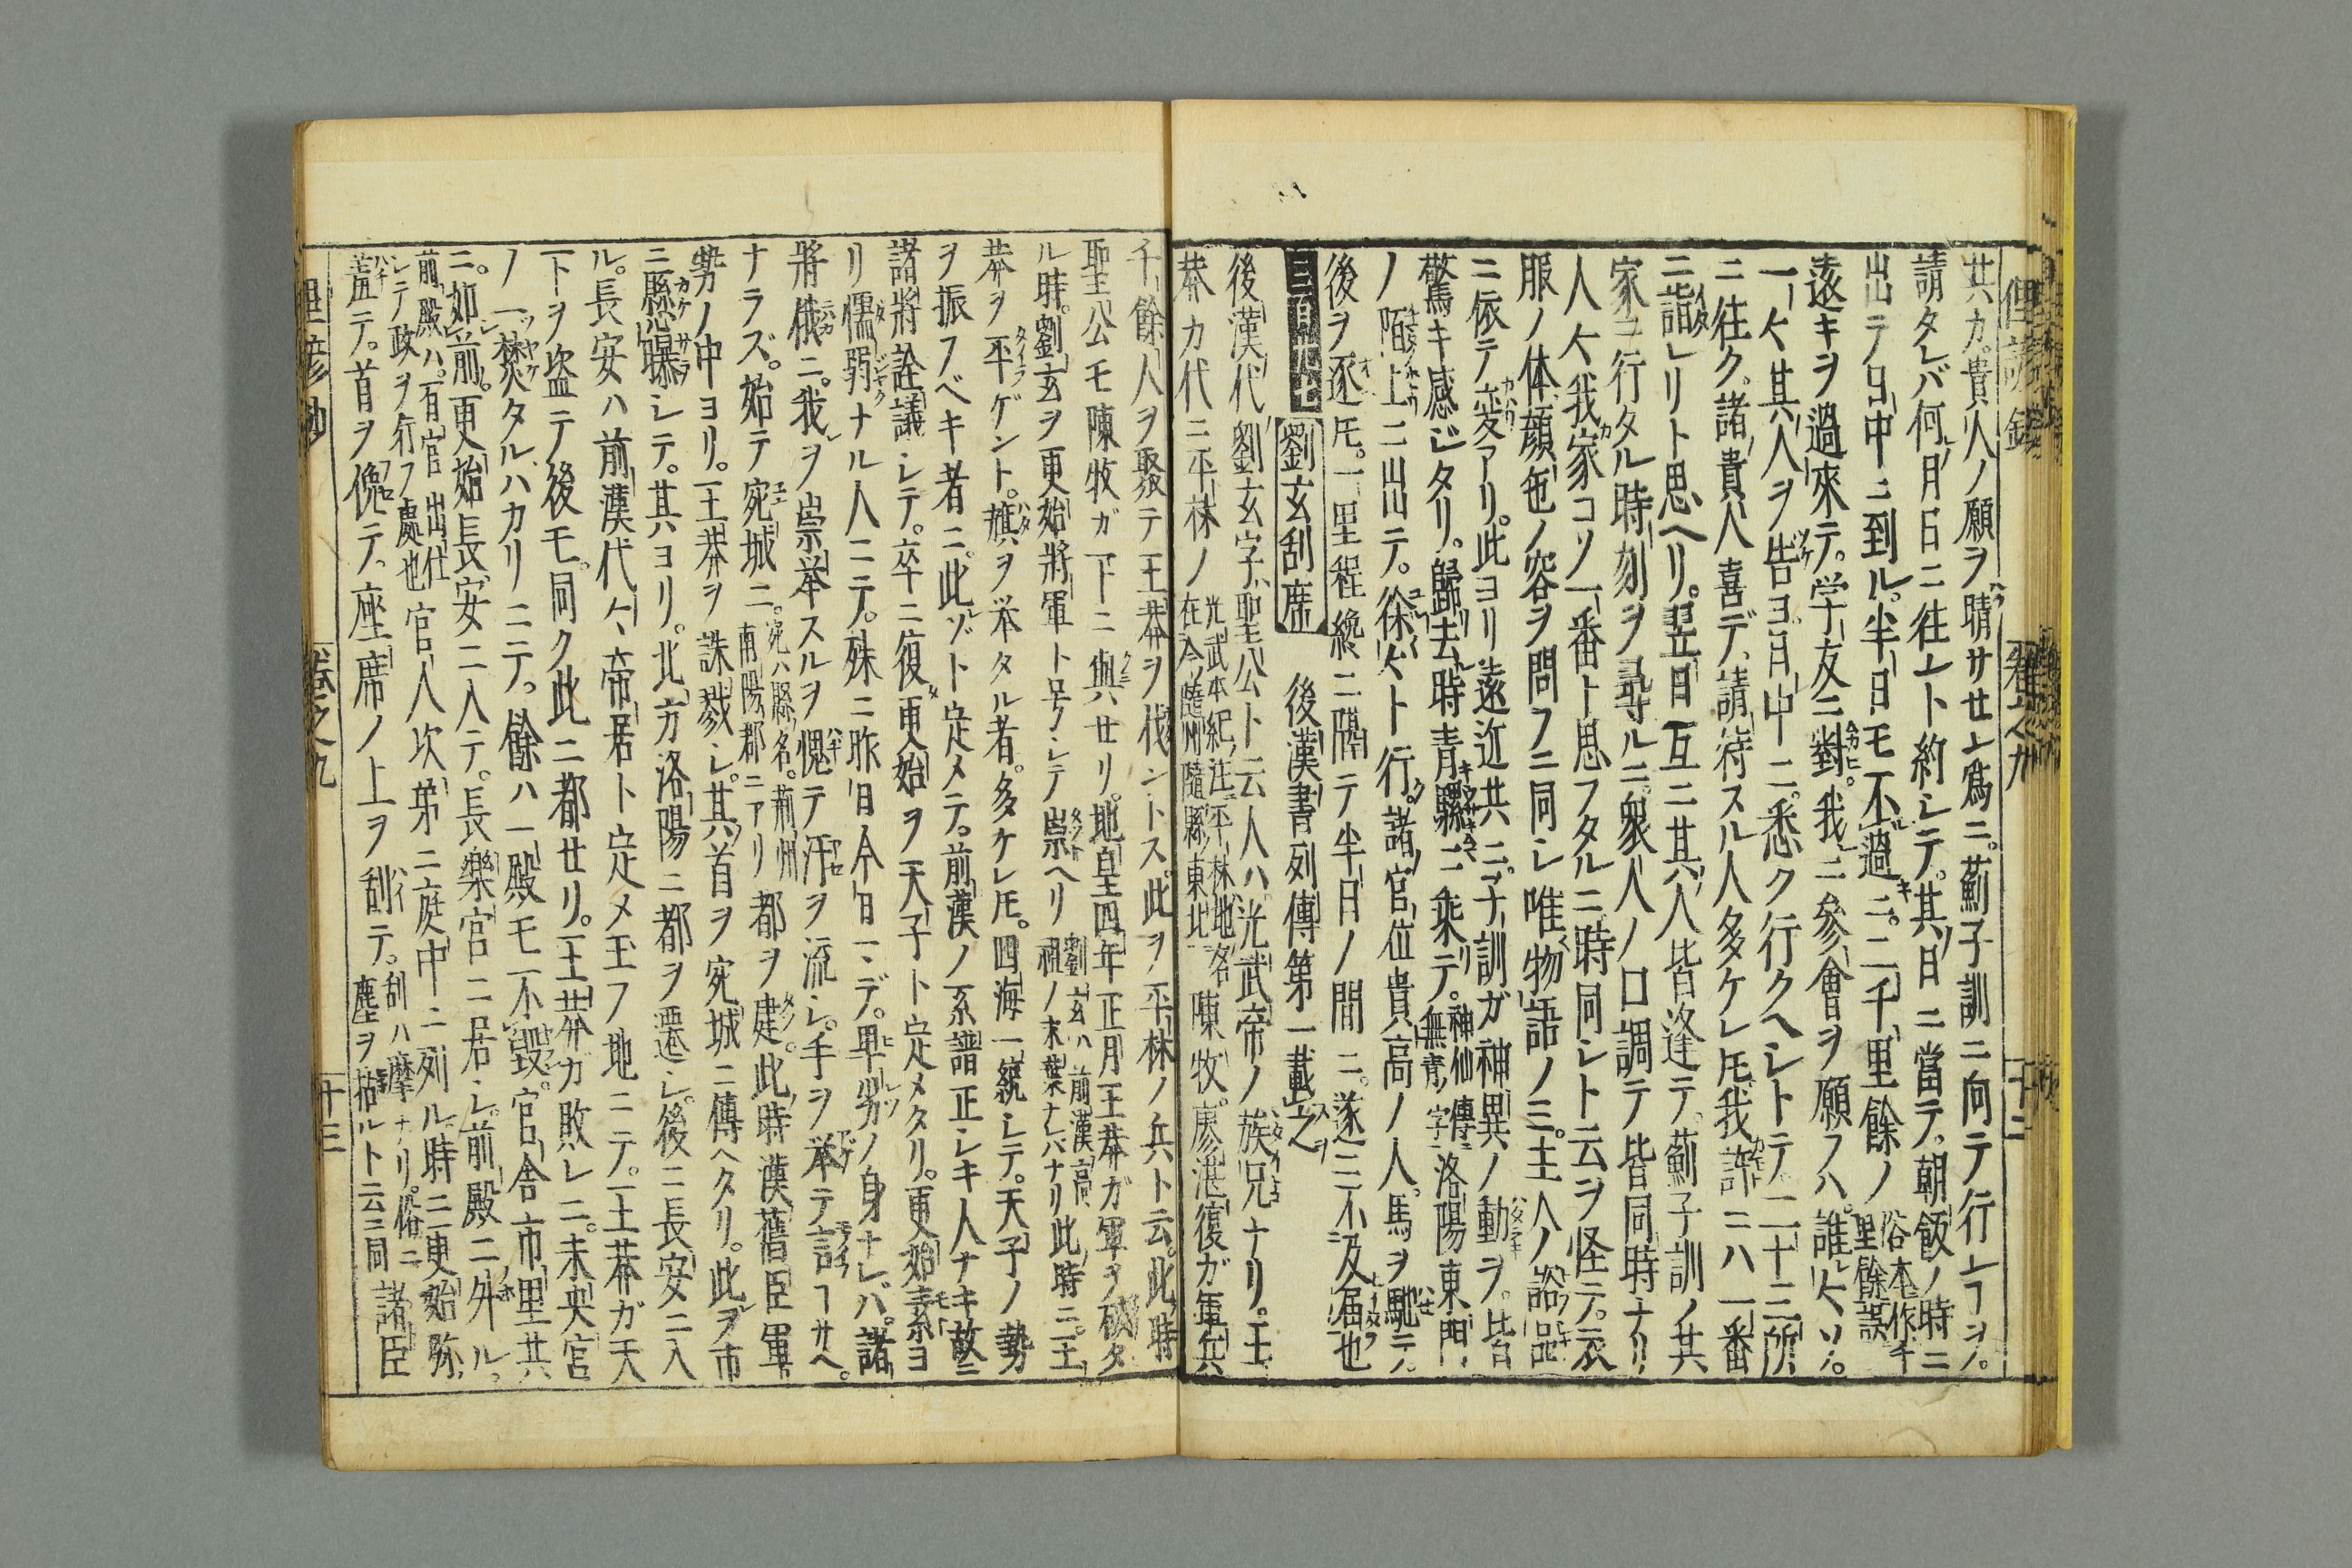 共カ。貴人ノ願ヲ晴サセム為ニ。薊子訓ニ向テ行ムヿヲ。
請タレバ何月日ニ往ムト約シテ。其日ニ當テ。朝飯ノ時ニ
出テ日中ニ到ル。半日モ不過ニ。二千里餘ノ俗本作千里餘誤
遠キヲ過來テ。学友ニ對。我ニ參會ヲ願フハ。誰々ソ。
一々其人ヲ告ヨ。日中ニ。悉ク行クヘシトテ。二十三所
ニ往ク。諸貴人喜デ。請待スル人多ケレ𪜈。我許ニハ一番
ニ詣レリト思ヘリ。翌日互ニ其人皆逢テ。薊子訓ノ其
家ニ行タル時刻ヲ尋ルニ。衆人ノ口調テ皆同時ナリ。
人々我家コソ一番ト思フタルニ。時同シト云ヲ怪テ。衣
服ノ体。顔色ノ容ヲ問フニ同シ。唯物語ノミ。主人ノ
ニ依テ変アリ。此ヨリ遠近共ニ。子訓ガ神異ノ動ヲ。皆
驚キ感ジタリ。歸去時青騾ニ乗テ。神仙傳ニ無青ノ字洛陽東門
ノ陌上ニ出テ。徐々ト行。諸官位貴高ノ人。馬ヲ馳テ。
後ヲ逐𪜈。一里程纔ニ隔テ半日ノ間ニ。遂ニ不及届也
三百九七 劉玄刮席 後漢書列傳第一載之
後漢代劉玄字ハ聖公ト云人ハ。光武帝ノ族兄ナリ。王
莽カ代ニ平林ノ光武本紀ノ注ニ平林ハ地名在今隨州隨縣東北陳牧。廖湛復ガ軍兵
千餘人ヲ聚テ王莽ヲ伐ントス。此ヲ平林ノ兵ト云。此時
聖公モ陳牧ガ下ニ與セリ。地皇四年正月王莽ガ軍ヲ破タ
ル時。劉玄ヲ更始將軍ト号ノシテ崇ヘリ劉玄ハ前漢高祖ノ末葉ナレバナリ此時ニ。王
莽ヲ平ゲント。旗ヲ挙タル者。多ケレ𪜈。四海一統シテ。天子ノ勢
ヲ振フベキ者ニ。此ゾト定メテ。前漢ノ系譜正シキ人ナキ故ニ
諸將詮議シテ。卒ニ復更始ヲ天子ト定メタリ。更始素ヨ
リ懦弱ナル人ニテ。殊ニ昨日今日マデ。卑劣ノ身ナレバ。諸
將俄ニ。我ヲ崇挙スルヲ愧テ汗ヲ流シ。手ヲ挙テ言ヿサヘ。
ナラズ。始テ宛城ニ。宛ハ縣ノ名。荊州南陽郡ニアリ都ヲ建。此時漢舊臣軍
勢ノ中ヨリ。王莽ヲ誅戮シ。其首ヲ宛城ニ傳ヘタリ。此ヲ市
ニ懸曝シテ。其ヨリ。北方洛陽ニ都ヲ遷シ。後ニ長安ニ入
ル。長安ハ前漢代々帝居ト定メ玉フ地ニテ。王莽ガ天
下ヲ盗テ後モ。同ク此ニ都セリ。王莽ガ敗レニ。未央宮
ノ一焚タルハカリニテ。餘ハ一殿モ不毀。官舎市里共
ニ。如前。更始長安ニ入テ。長樂宮ニ居シ。前殿ニ外ル。
前殿ハ。百官出仕シテ政ヲ行フ處也官人次第ニ庭中ニ列ル。時ニ更始弥
羞テ。首ヲ俛テ。座席ノ上ヲ刮テ。刮ハ摩ナリ。俗ニ塵ヲ括ルト云ニ同諸臣
卷之九 十三